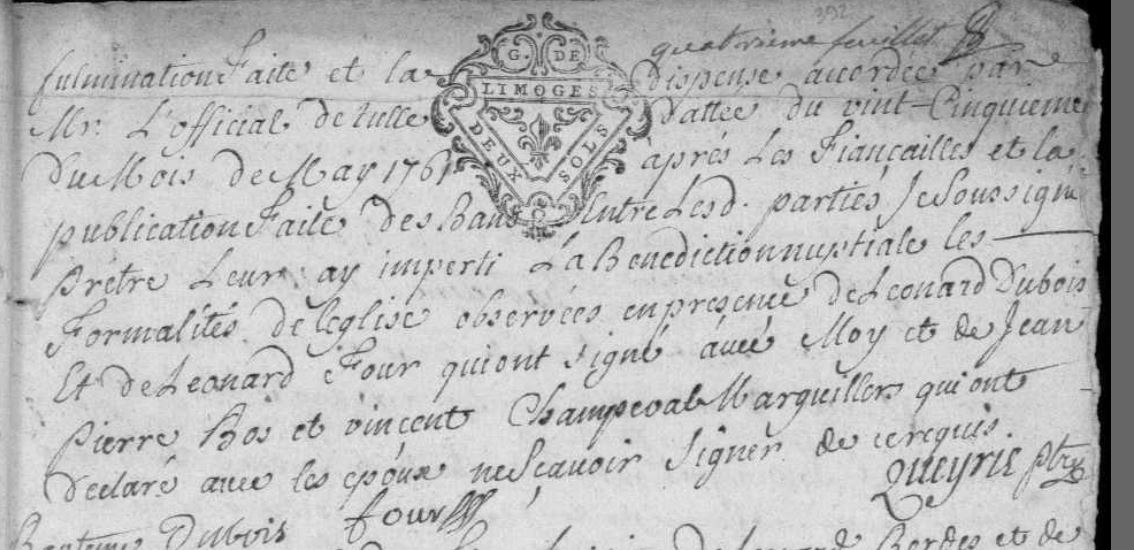 392
quatrieme feuillet
G. DE
LIMOGES
DEUX SOLS
fulmination Faite et la dispense accordée par
Mr. L'official de tulle dattée du vint-Cinquieme
Du Mois de May 1761 aprés Les Fiançailles et la
publication Faite des Bans Entre Lesd. parties Je Soussigné
Prétre Leur ay imperti La Benediction nuptiale les
Formalités de leglise observées en presence de Leonard Dubois
Et de Leonard Four qui ont signé avec Moy et de Jean
Pierre Bos et vincent Champeval Marguillers qui ont
declaré avec les epoux ne Scavoir Signer de ce requis.
Queyrie ptre
Dubois four
Bordes et de